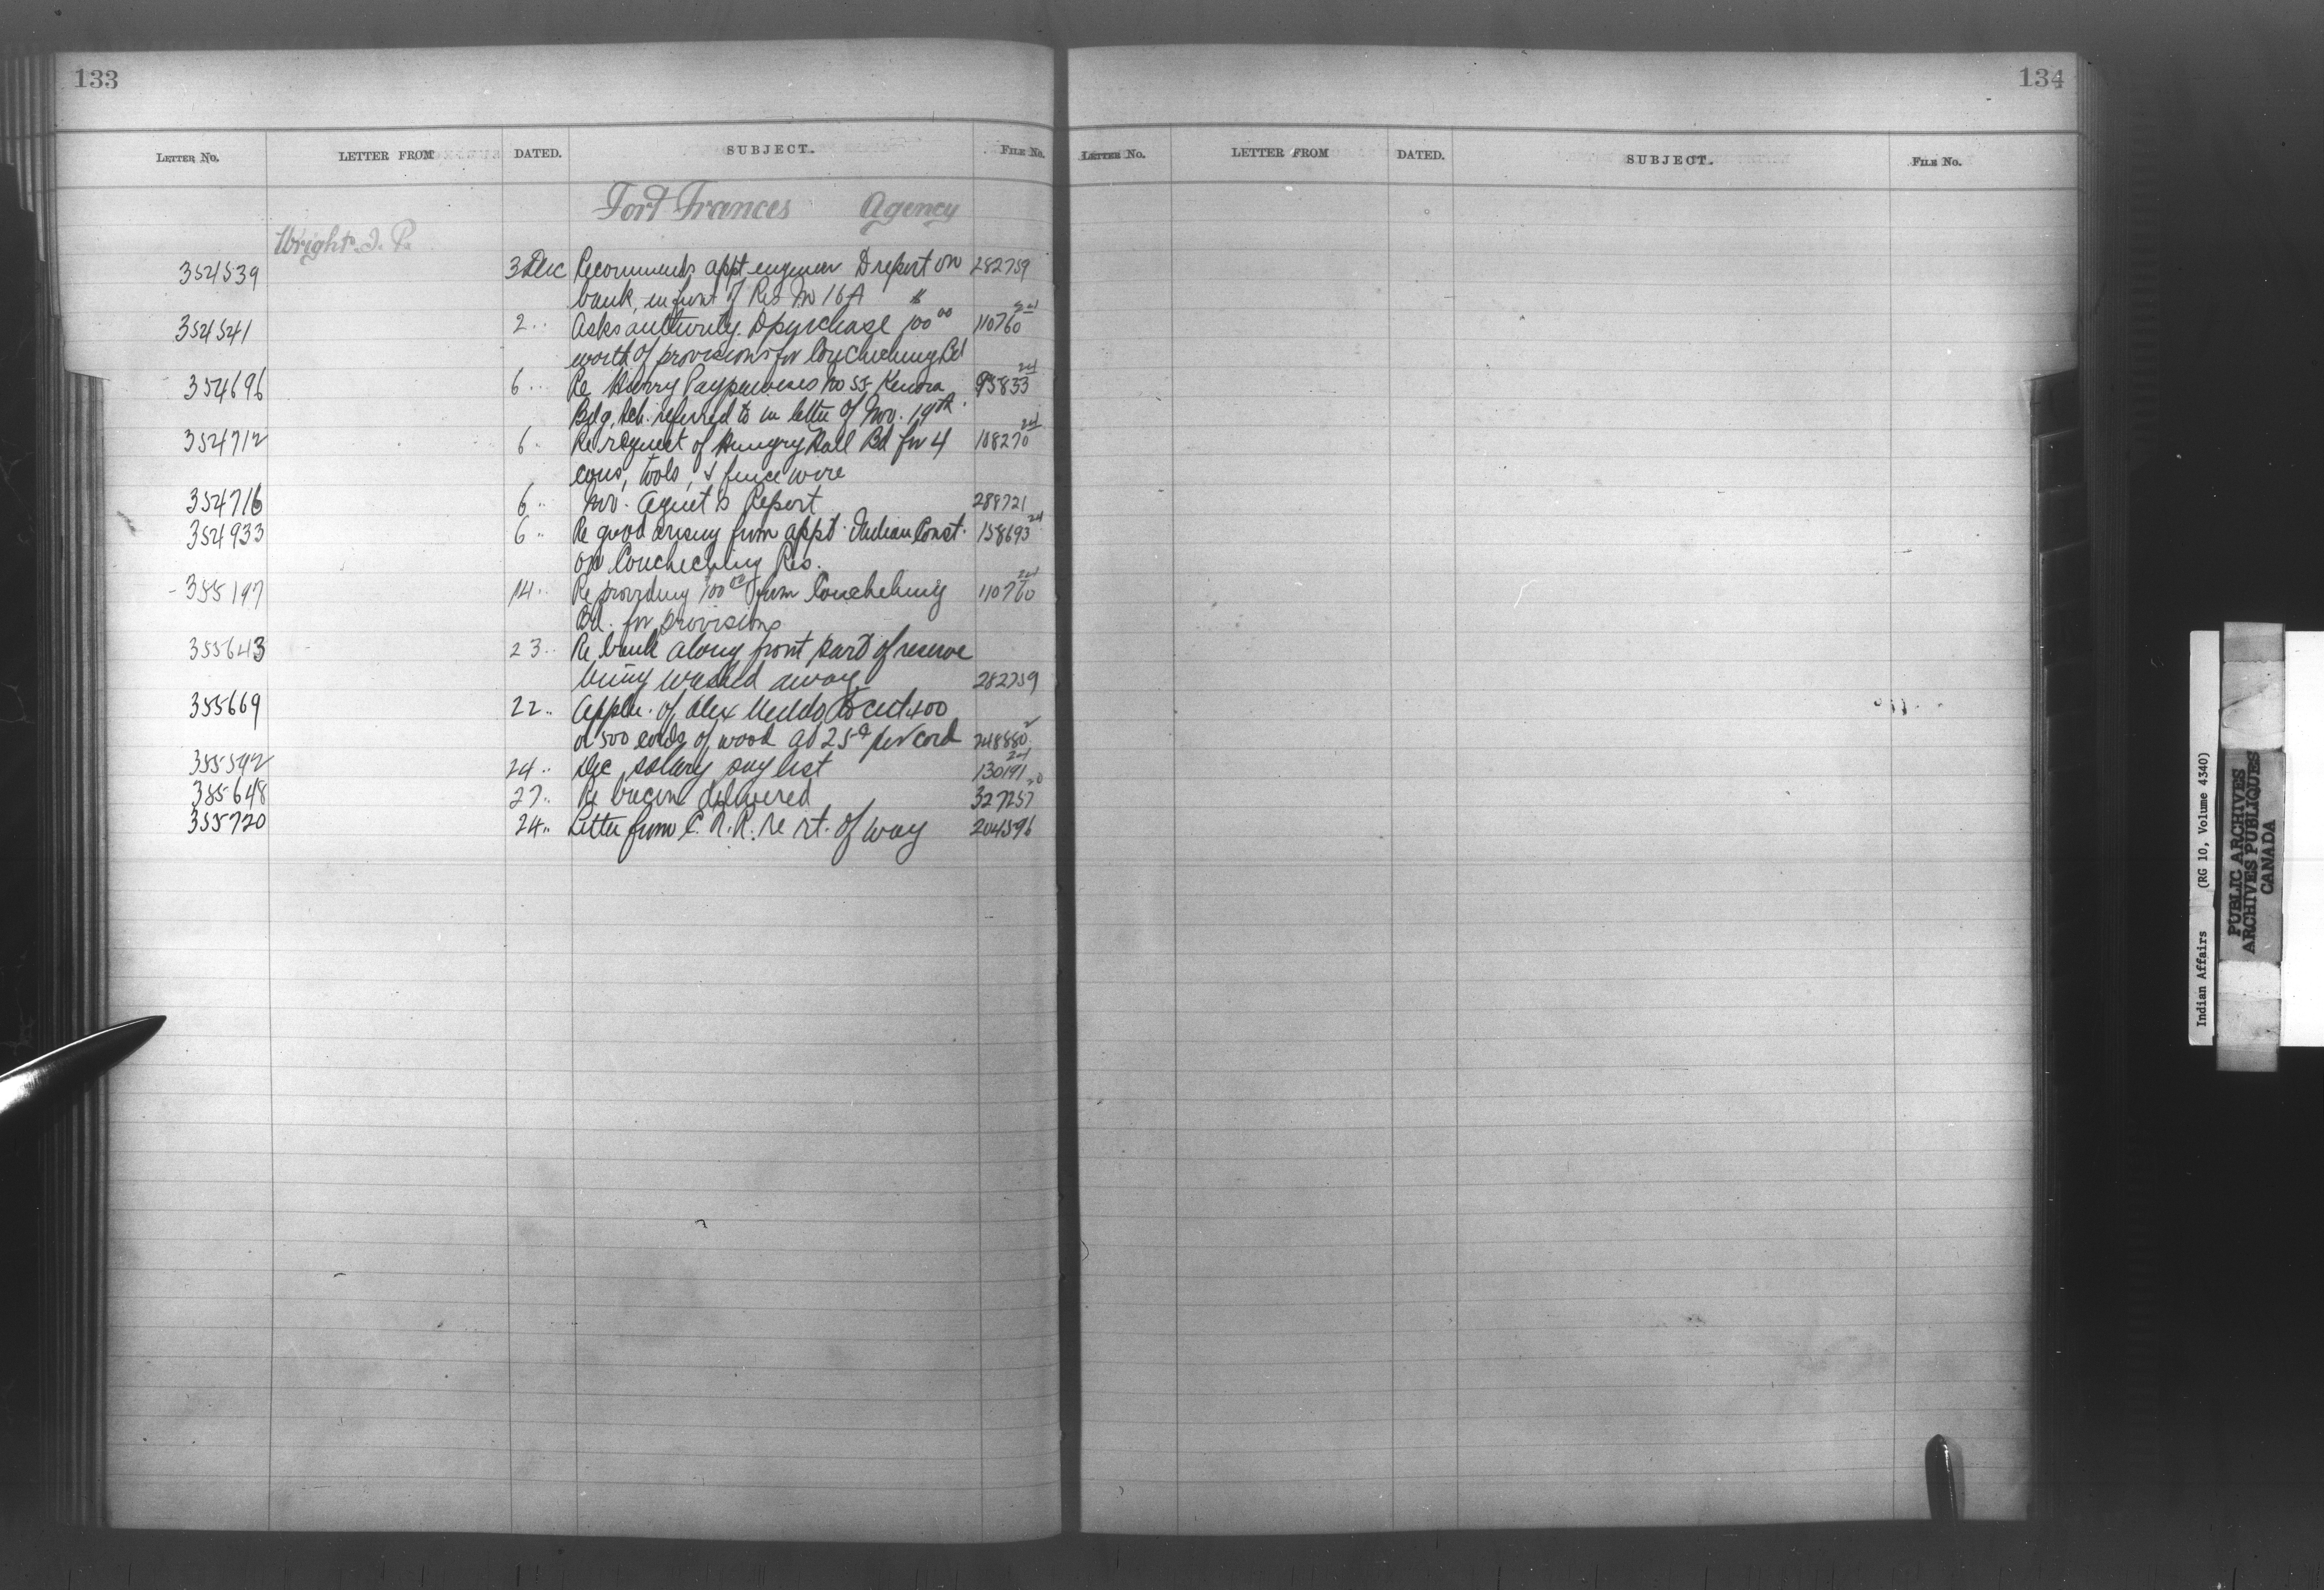 133
LETTER NO. LETTER FROM DATED. SUBJECT. FILE NO.
Fort Frances Agency
Wright J. P.
354539 3 Dec Recommends appt engineer to report on 282759
bank, in front of Res No 16A
354541 2 " Asks authority to purchase 100 00 110760 24
worth of provisions for Couchiching Bd
354696 6 " Re Harry No 55 Kenora 95833 24
Bdg. Sch. referred to in letter of Nov. 19th
354712 6 " Re request of Hungry Hall Bd for 4 108270 24
cows, tools, & fence wire
354716 6 " Nov. Agent's Report 289721
354933 6 " Re good arising from appt. Indian Const. 158693 24
on Couchiching Res.
355197 14 " Re providing 100 00 from Couchiching 110760 24
Bd. for provisions
355643 23 " Re bank along front part of reserve
being washed away 282759
355669 22 " Appln. of Alex to cut 400
or 500 cords of wood at 25¢ per cord 248880 2
355592 24 " Dec salary pay list 130191 24
355648 27 " Re bacon delivered 327257
355720 24 " Letter from C.N.R. re rt. of way 204596
134
LETTER NO. LETTER FROM DATED. SUBJECT. FILE NO.
Indian Affairs (RG 10, Volume 4340)
PUBLIC ARCHIVES
ARCHIVES PUBLIQUES
CANADA